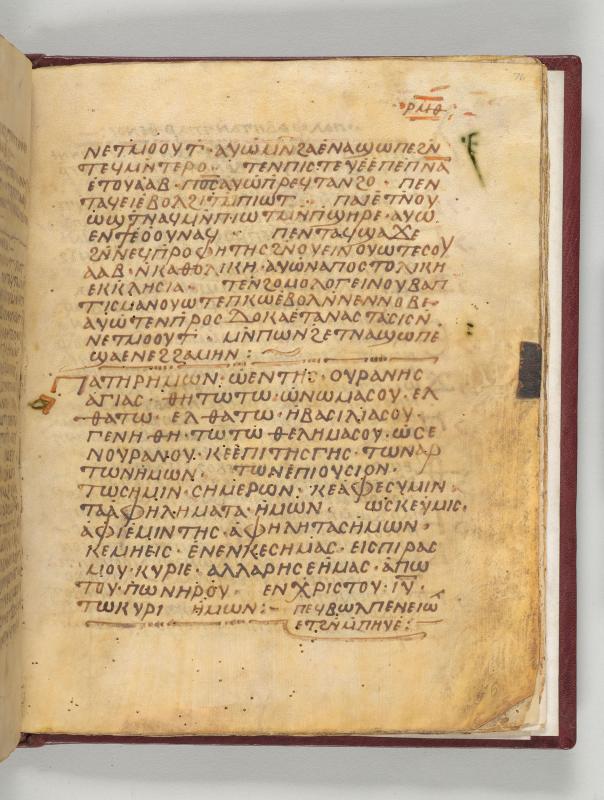 ⲣⲙⲑ
ⲛⲉⲧⲙⲟⲟⲩⲧ· ⲁⲩⲱⲙⲛϩⲁⲉⲛⲁϣⲱⲡⲉϩⲛ
ⲧⲉϥⲙⲛⲧⲉⲣⲟ· ⲧⲉⲛⲡⲓⲥⲧⲉⲩⲉⲉⲡⲉⲡⲛⲁ
ⲉⲧⲟⲩⲁⲁⲃ· ⲡⲟⲥⲁⲩⲱⲡⲣⲉϥⲧⲁⲛϩⲟ· ⲡⲉⲛ
ⲧⲁϥⲉⲓⲉⲃⲟⲗϩⲓⲧⲙⲡⲓⲱⲧ· ⲡⲁⲓⲉⲧⲟⲩ
ⲱϣⲧⲛⲁϥⲙⲛⲡⲓⲱⲧⲙⲛⲡϣⲏⲣⲉ· ⲁⲩⲱ
ⲉⲛϯⲉⲟⲟⲩⲛⲁϥ· ⲡⲉⲛⲧⲁϥϣⲁϫⲉ
ϩⲛⲛⲉϥⲡⲣⲟⲫⲏⲧⲏⲥϩⲛⲟⲩⲉⲓⲛⲟⲩⲱⲧⲉⲥⲟⲩ
ⲁⲁⲃ· ⲛⲕⲁⲑⲟⲗⲓⲕⲏ· ⲁⲩⲱⲛⲁⲡⲟⲥⲧⲟⲗⲓⲕⲏ
ⲉⲕⲕⲗⲏⲥⲓⲁ· ⲧⲉⲛϩⲟⲙⲟⲗⲟⲅⲉⲓⲛⲟⲩⲃⲁⲡ
ⲧⲓⲥⲙⲁⲛⲟⲩⲱⲧⲉⲡⲕⲱⲉⲃⲟⲗⲛⲛⲉⲛⲛⲟⲃⲉ·
ⲁⲩⲱⲧⲉⲛⲡⲣⲟⲥⲇⲟⲕⲁⲉⲧⲁⲛⲁⲥⲧⲁⲥⲓⲥⲛ
ⲛⲉⲧⲙⲟⲟⲩⲧ· ⲙⲛⲡⲱⲛϩⲉⲧⲛⲁϣⲱⲡⲉ
ϣⲁⲉⲛⲉϩϩⲁⲙⲏⲛ:
ⲡⲁⲧⲏⲣⲏⲙⲱⲛ: ⲱⲉⲛⲧⲏⲥ· ⲟⲩⲣⲁⲛⲏⲥ
ⲁⲅⲓⲁⲥ· ⲑⲏⲧⲱⲧⲱ· ⲱⲛⲱⲙⲁⲥⲟⲩ· ⲉⲗ
ⲑⲁⲧⲱ· ⲉⲗⲑⲁⲧⲱ· ⲏⲃⲁⲥⲓⲗⲓⲁⲥⲟⲩ·
ⲅⲉⲛⲏⲑⲏ· ⲧⲱⲧⲱ ⲑⲉⲗⲏⲙⲁⲥⲟⲩ· ⲱⲥⲉ
ⲛⲟⲩⲣⲁⲛⲟⲩ· ⲕⲉⲉⲡⲓⲧⲏⲥⲅⲏⲥ· ⲧⲱⲛⲁⲣ
ⲧⲱⲛⲏⲙⲱⲛ· ⲧⲱⲛⲉⲡⲓⲟⲩⲥⲓⲟⲛ·
ⲧⲱⲥⲏⲙⲓⲛ· ⲥⲏⲙⲉⲣⲱⲛ· ⲕⲉⲁⲫⲉⲥⲩⲙⲓⲛ·
ⲧⲁⲁⲫⲏⲗⲏⲙⲁⲧⲁ· ⲏⲙⲱⲛ· ⲱⲥⲕⲉⲩⲙⲓⲥ·
ⲁⲫⲓⲉⲙⲓⲛⲧⲏⲥ· ⲁⲫⲏⲗⲏⲧⲁⲥⲏⲙⲱⲛ·
ⲕⲉⲙⲏⲉⲓⲥ· ⲉⲛⲉⲛⲕⲉⲥⲏⲙⲁⲥ· ⲉⲓⲥⲡⲓⲣⲁⲥ
ⲙⲟⲩ· ⲕⲩⲣⲓⲉ· ⲁⲗⲗⲁⲣⲏⲥⲉⲏⲙⲁⲥ· ⲁⲡⲱ
ⲧⲟⲩ· ⲡⲱⲛⲏⲣⲟⲩ· ⲉⲛⲭⲣⲓⲥⲧⲟⲩ· ⲓⲩ
ⲧⲱⲕⲩⲣⲓ ⲏⲙⲱⲛ:– ⲡⲉϥⲃⲱⲗⲡⲉⲛⲉⲓⲱ
ⲉⲧϩⲛⲙⲡⲏⲩⲉ: